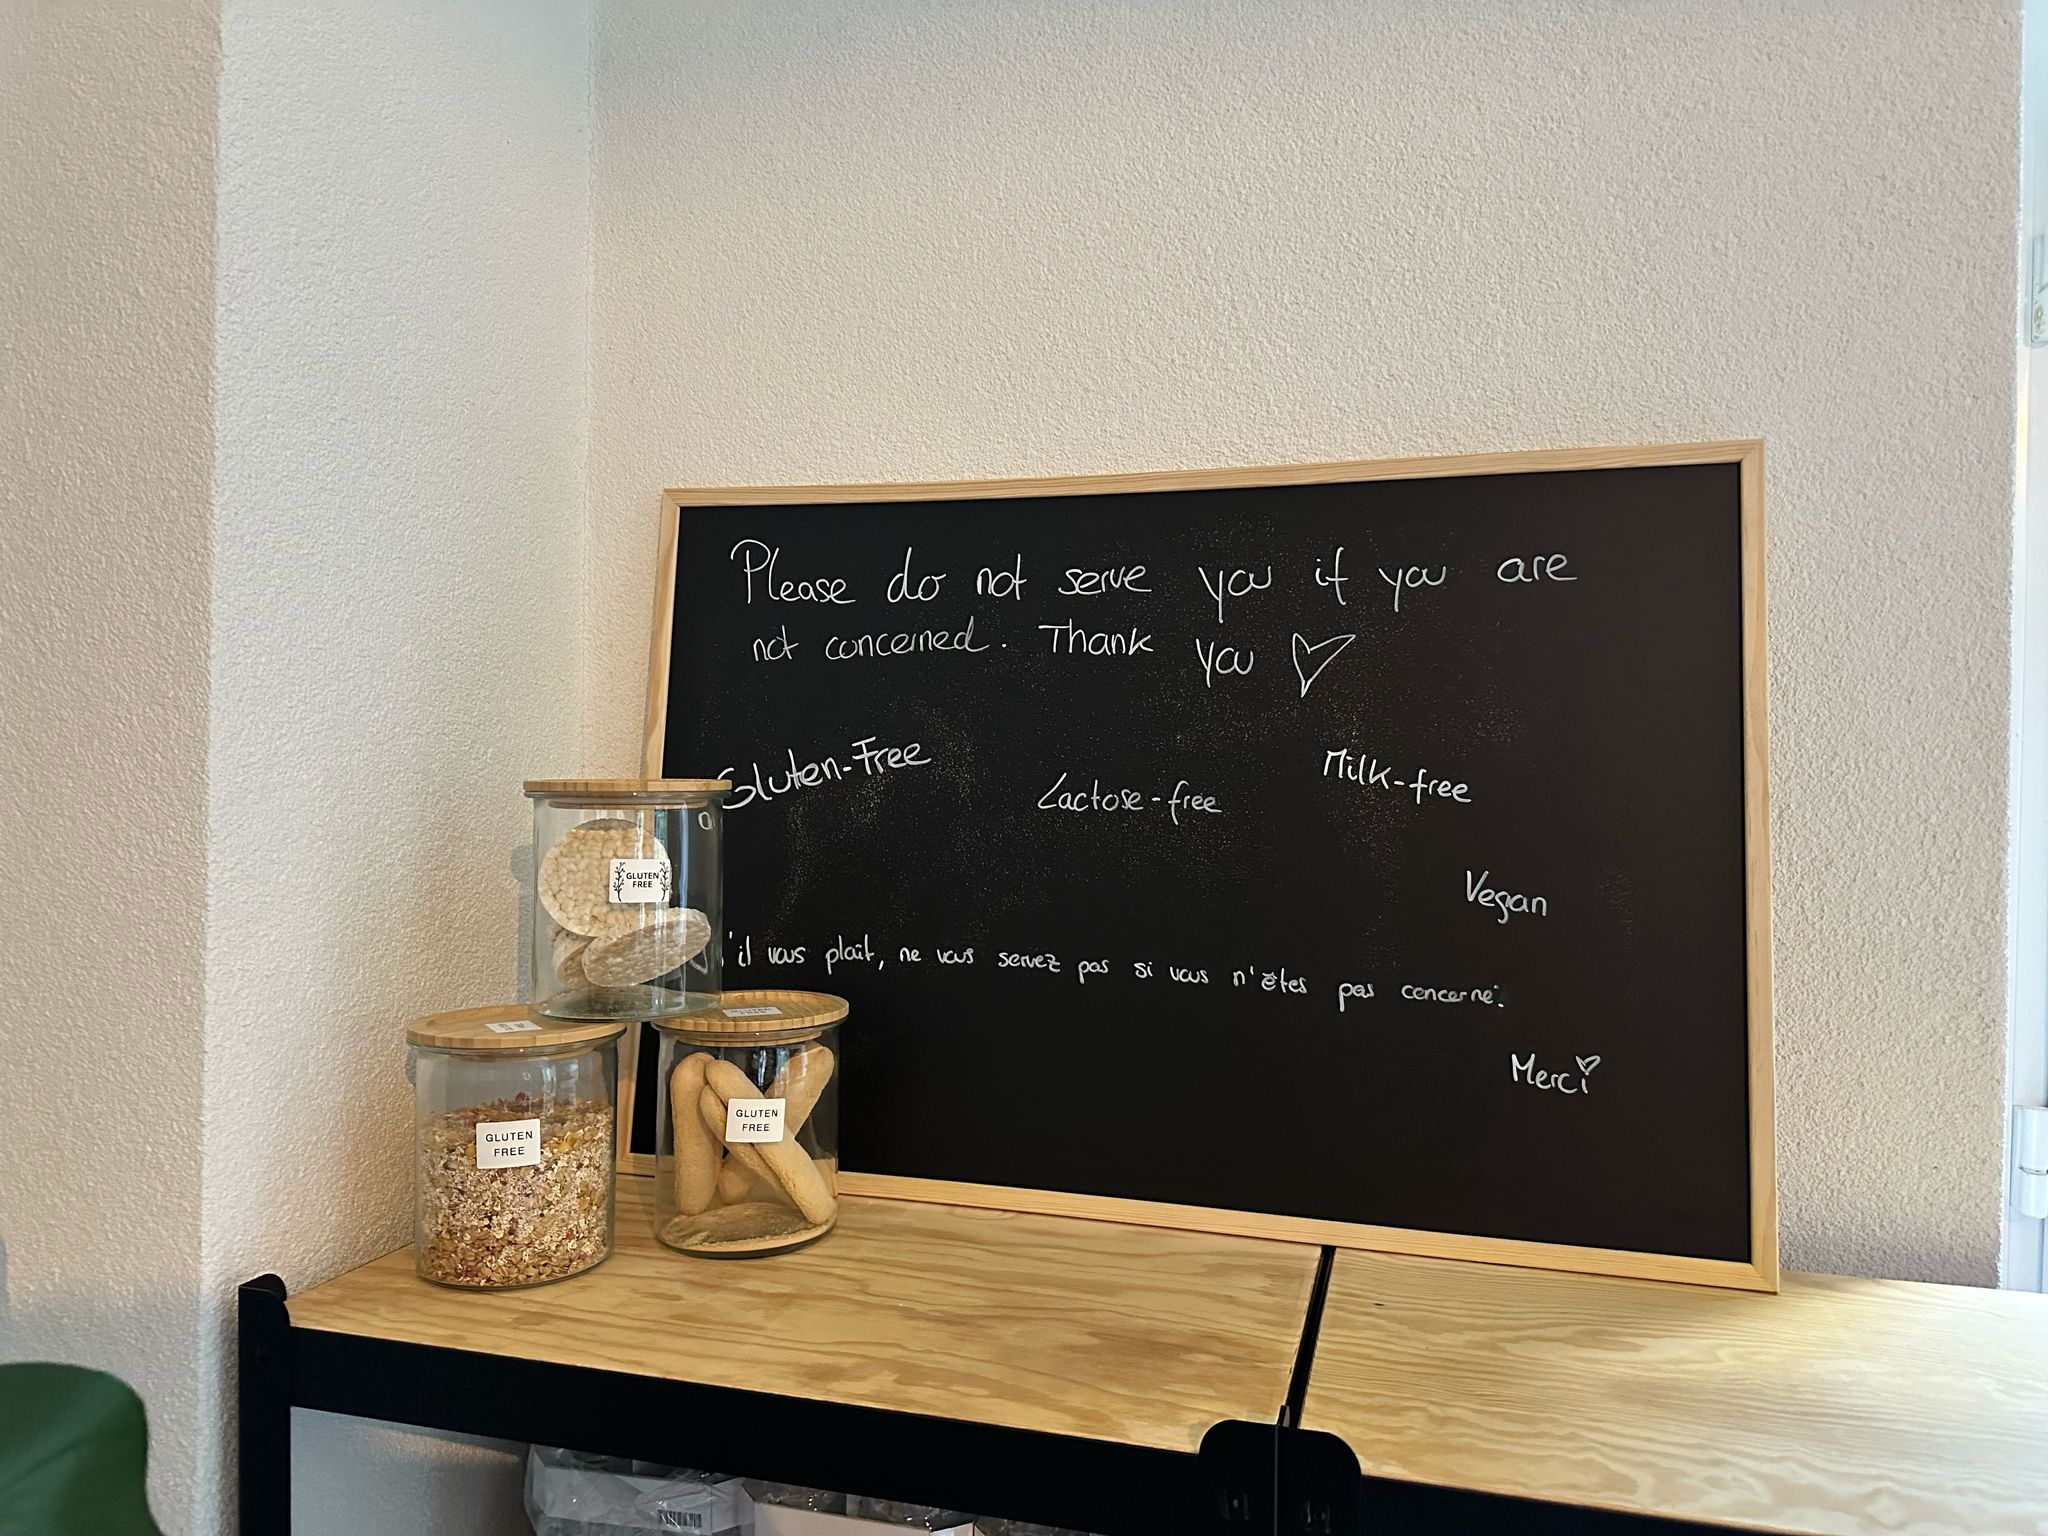 Please do not serve you if you are
not concerned. Thank you
Gluten-Free
Lactose-free
Milk-free
Vegan
'il vous plaît, ne vous servez pas si vous n'êtes pas concerné.
Merci
GLUTEN
FREE
GLUTEN
FREE
GLUTEN
FREE